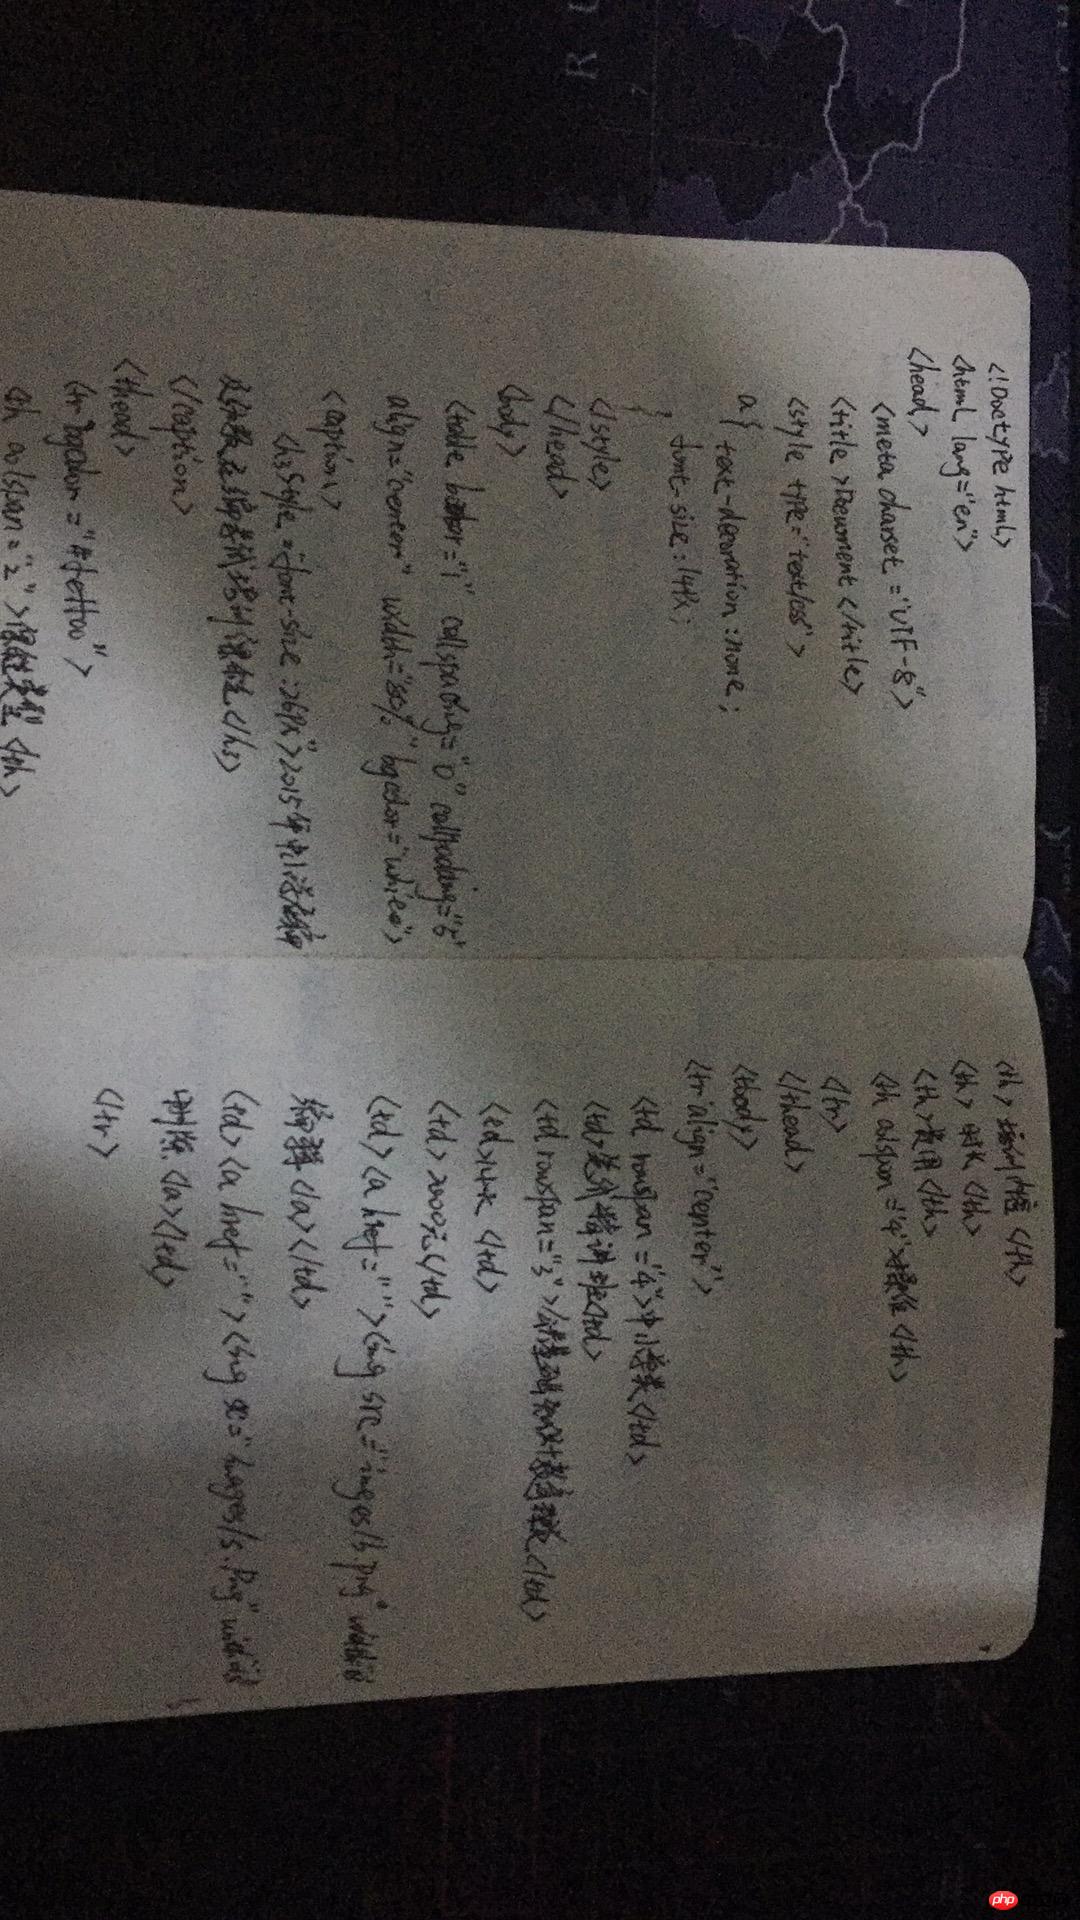 <!Doctype html>
<html lang="en">
<head>
<meta charset="UTF-8">
<title>Document</title>
<style type="text/css">
a{ text-decoration:none;
font-size:14px;
}
</style>
</head>
<body>
<table border="1" cellspacing="0" cellpadding="5"
align="center" width="80%" bgcolor="white">
<caption>
<h3 style="font-size:26px">2015年中小学
培训课程</h3>
</caption>
<thead>
<tr bgcolor="#
<th colspan="2">课程类型</th>
<th>培训内容</th>
<th>时长</th>
<th>费用</th>
<th colspan="4">操作</th>
</tr>
</thead>
<tbody>
<tr align="center">
<td rowspan="4">中小学类</td>
精讲班</td>
<td rowspan="3">
<td>2天</td>
<td>2000元</td>
<td><a href=""><img src="images/b.png"
编辑</a></td>
<td><a href=""><img src="images/s.png"
删除</a></td>
</tr>
php